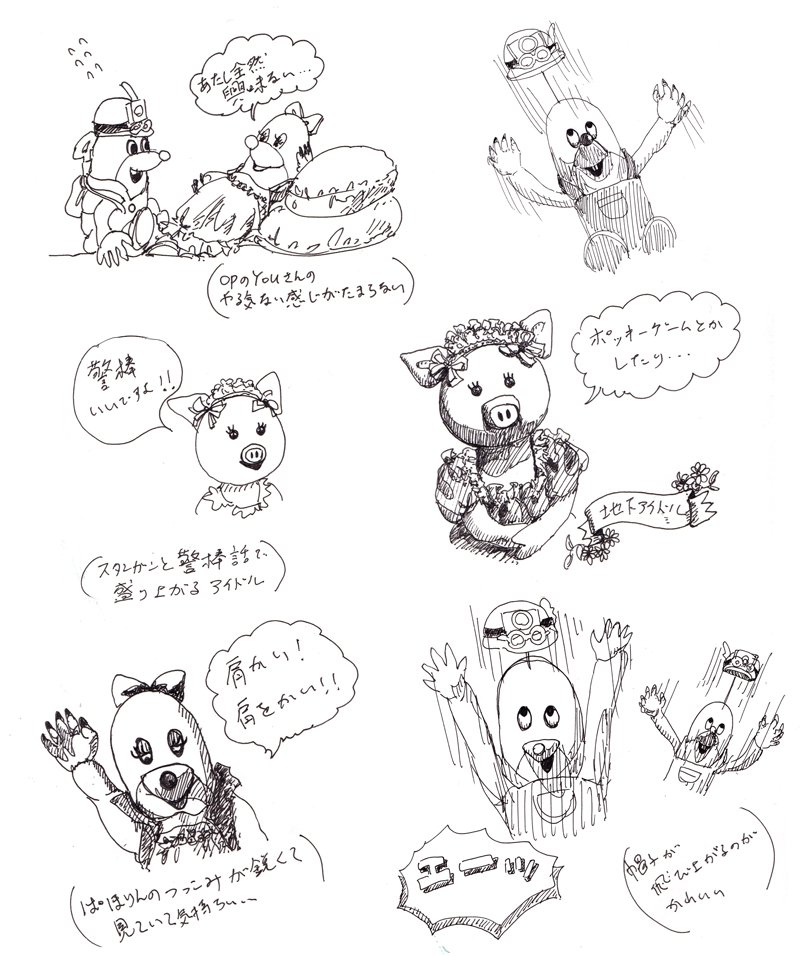 あたし全然
興味ない…
(OPのYOUさんの
やる気ない感じがたまらない)
警棒
いいですよ!!
ポッキーゲームとか
したり…
地下アイドル
(スタンガンと警棒話で
盛り上がるアイドル)
肩かい!
肩をかい!!
エーッ
(ぱほりんのつっこみが鋭くて
見ていて気持ちいい)
(帽子が
飛び上がるのが
かわいい)